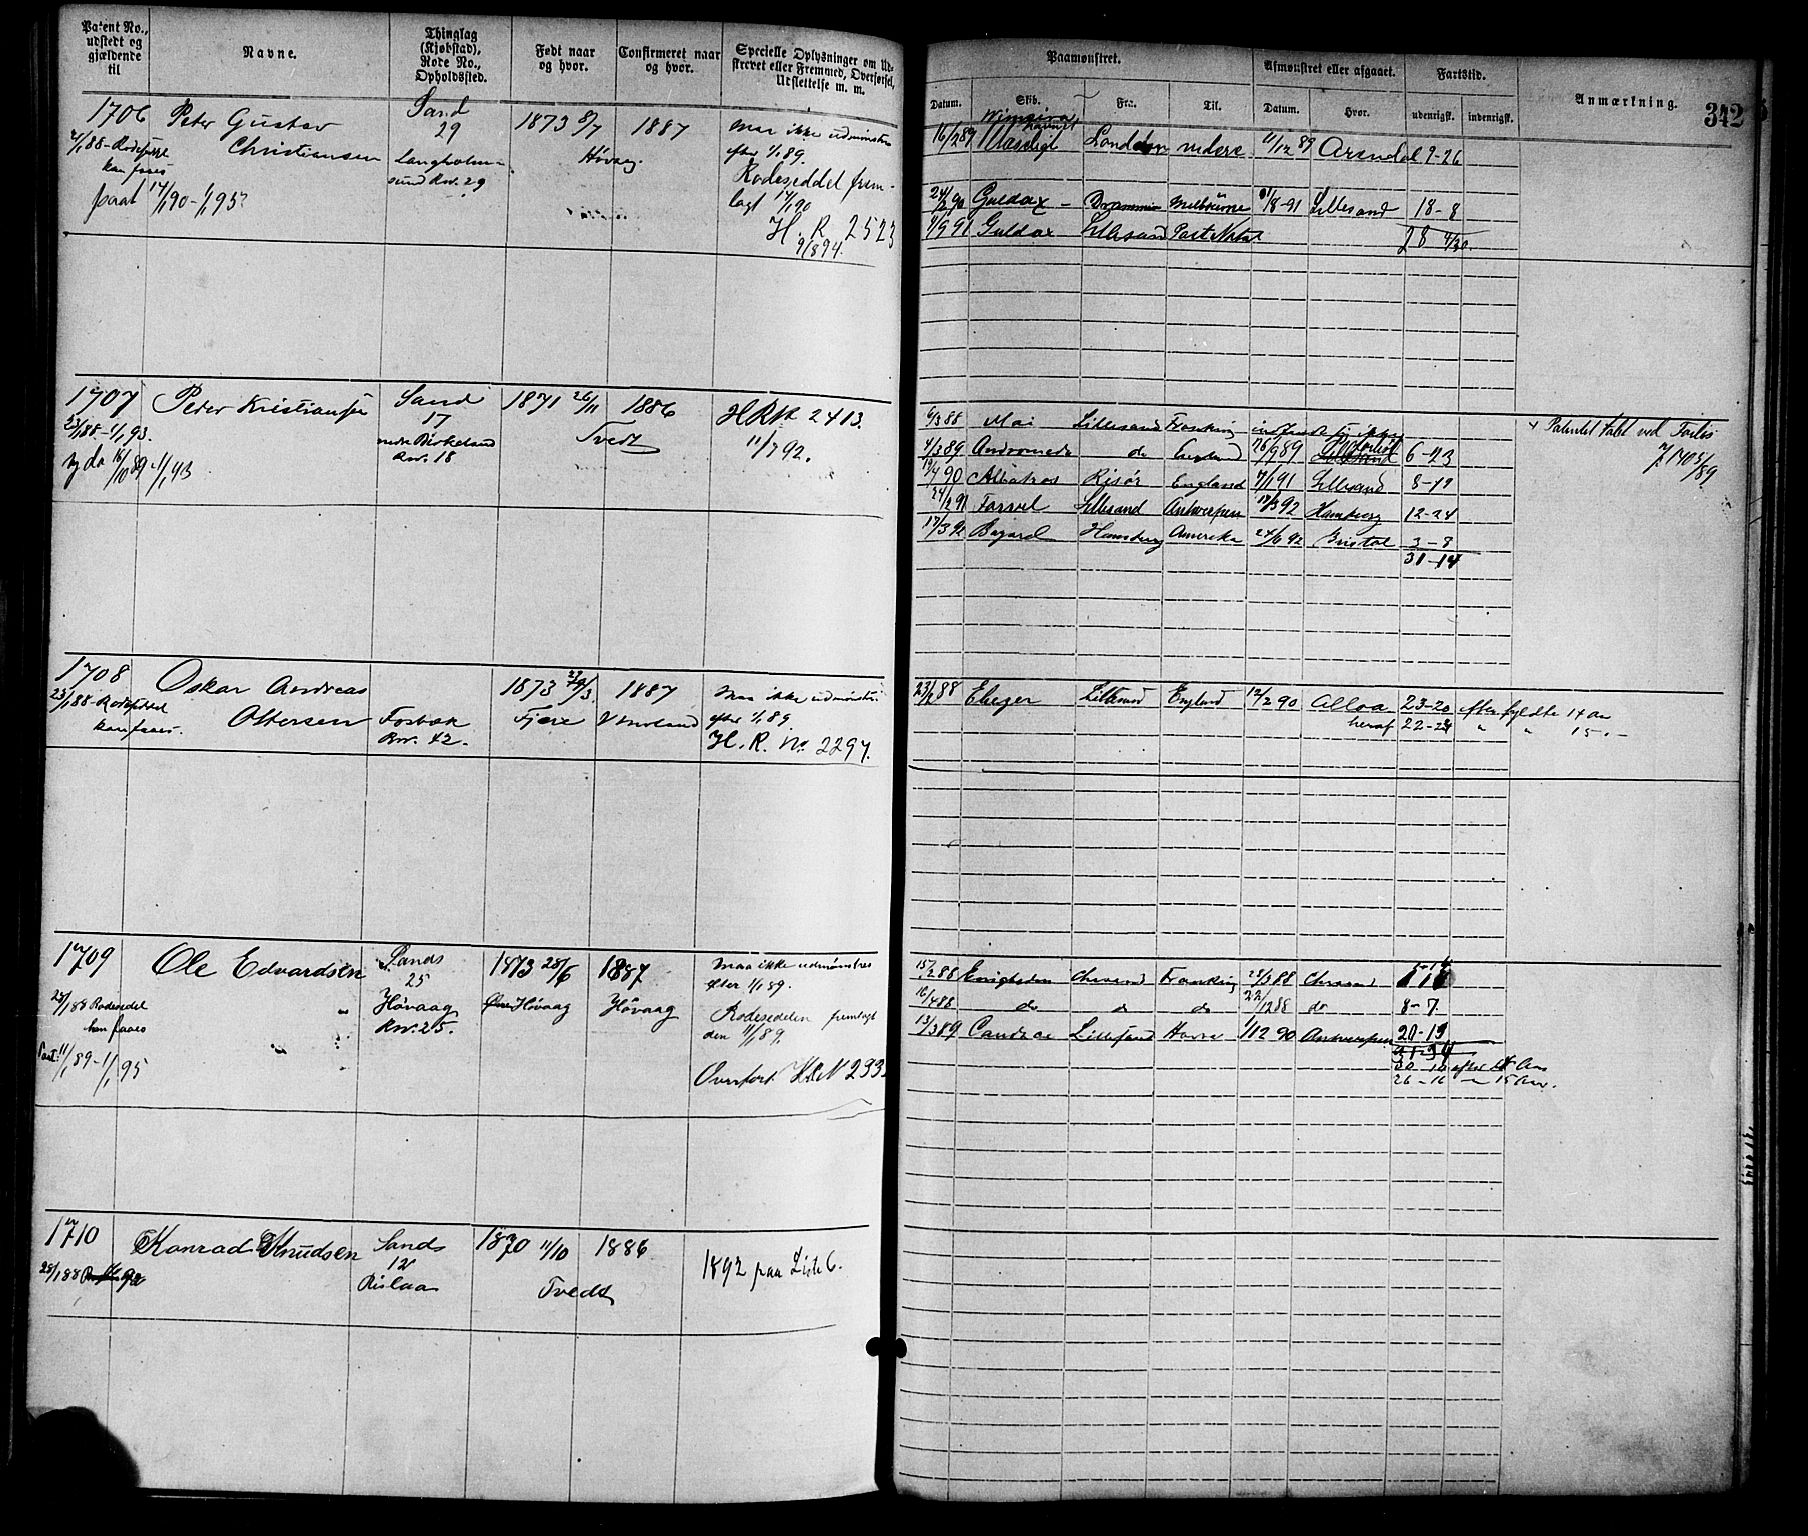 Patent No., udstedt og gjældende til
Navne.
Thinglag (Kjøbstad), Rode No., Opholdssted.
Født naar og hvor.
Confirmeret naar og hvor.
Specielle Oplysninger om Udskrevet eller Fremmed, Overførsel, Udslettelse m. m.
Paamønstret.
Afmønstret eller afgaaet.
Fartstid.
Anmærkning.
342
Datum.
Skib.
Fra.
Til.
Datum.
Hvor.
udenrigsk.
indenrigsk.
1706
Peter Gustav
Christiansen
Sand
29
Langholmsund Rw. 29
1873 8/7
Høvaag
1887
maa ikke udmønstres
efter 1/1 89.
Rodeseddel fremlagt 17/1 90
H. R. 2523
9/8 94.
kan faaes
paat 17/1 90 - 1/1 95
London
videre
11/12 89
Arendal
9-26
24/2 90
Guldax
Drammen
Melbourne
1/8-91
Lillesand
18-8
7/9 91
Guldax
Lillesand
Port Natal
28 4/30
1707
Peder Kristiansen
Sand
17
nedre Birkeland
Rw. 18
1871 26/11
Tvedt
1886
HRN 2413.
11/7 92.
23/1 88 - 1/1 93.
6/3 88
Mai
Lillesand
Frankrig
4/3 89
Andromeda
do
England
26/9 89
6-23
Patentet tabt ved Forlis
19/4 90
Albatros
Risør
England
17/1 91
Lillesand
8-19
24/2 91
Farvel
Lillesand
Antwerpen
17/3 92
Hamburg
12-24
17/3 92
Bayard
Hamburg
Amerika
24/6 92
Bristol
3-8
31-14
1708
Oskar Andreas
Ottersen
Fosbæk
Rw. 42.
1873
Fjære
1887
V Moland
maa ikke udmønstres
efter 1/1 89.
H. R. No. 2297.
23/1 88 - Rodeseddel
kan faaes.
23/2 88
Ebezer
Lillesand
England
12/2 90
Alloa
23-20
efter fyldte 14 Aar
heraf
22-24
" " 15 -
1709
Ole Edvardsen
Sands
25
Høvaag
Rw. 25.
1873 28/6
Høvaag
1887
Høvaag
maa ikke udmønstres
efter 1/1 89.
Rodesedelen fremlagt
den 11/1 89.
Overført
28/1 88 Rodesedel
kan faaes
Pat. 11/1 89 - 1/1 95
15/2 88
Enigheden
Chrsand
Frankrig
28/3 88
Chrsand
16/4 88
do
do
do
22/12 88
do
8-7.
13/3 89
Candace
Lillesand
Havre
1/12 90
Antwerpen
20-19
efter 14 Aar
26-16 - 15 Aar.
1710
Konrad Knudsen
Sands
12
Rislaa
1870 11/10
1886
Tvedt
1892 paa Liste C.
28/1 88